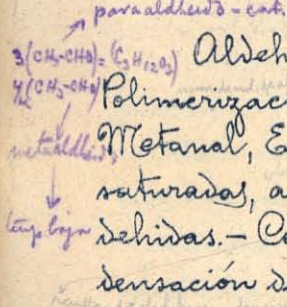 paraaldheid3 = cat.
3(CH₃-CHO) = (C₃H₁₂O₃)
4/n(CH₃-CHO)
metaaldheid
temp baja
Aldeh
Polimerizaci
Metanal, E
saturados, a
dehidas. - Co
densación d